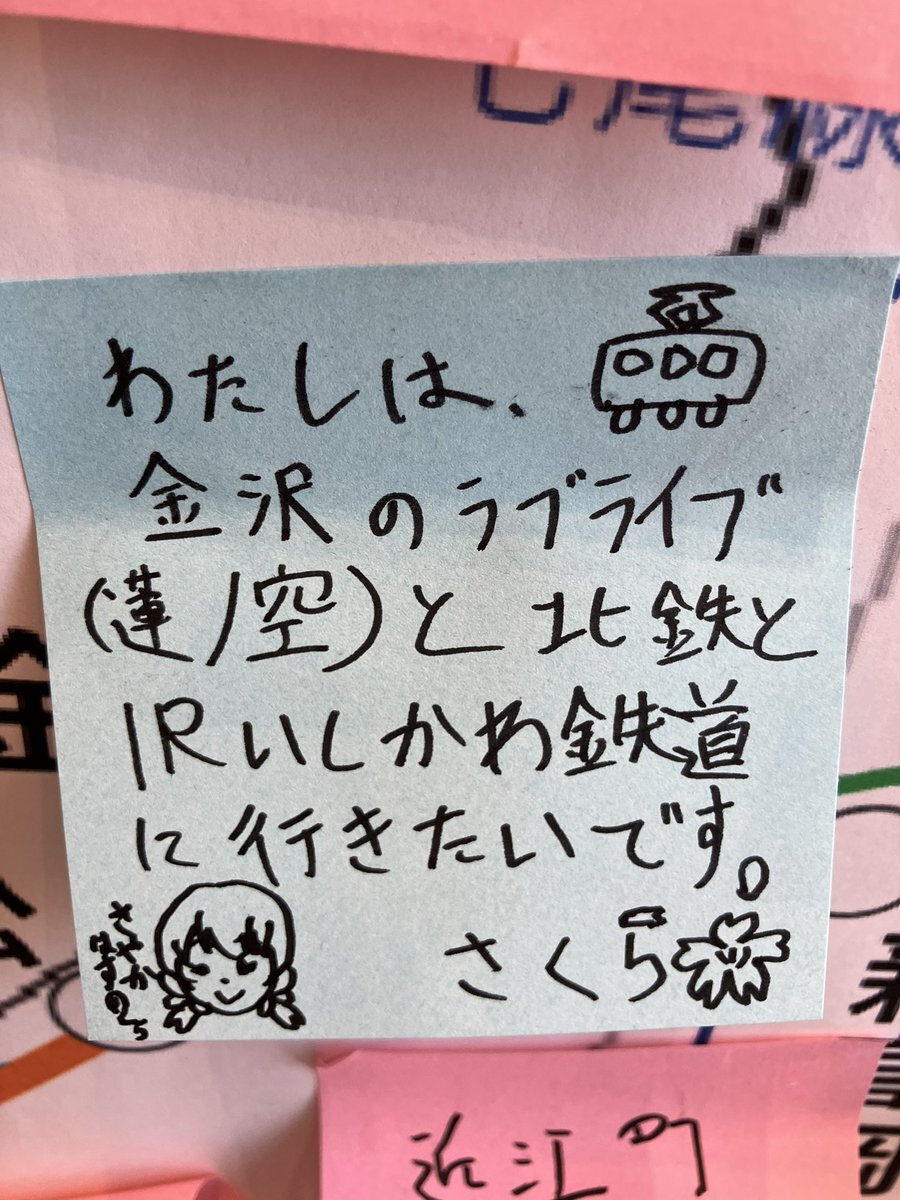 七尾線
わたしは、
金沢のラブライブ
(蓮ノ空)と北鉄と
IRいしかわ鉄道
に行きたいです。
さやか
さくら
金
近江町